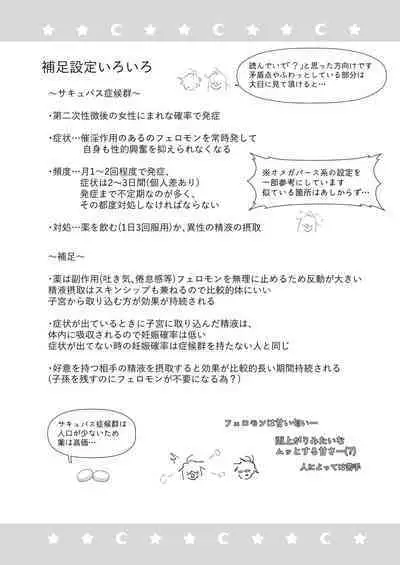 補足設定いろいろ
読んでいて「?」と思った方向けです
矛盾点やふわっとしている部分は
大目に見て頂けると…
～サキュバス症候群～
・第二次性徴後の女性にまれな確率で発症
・症状…催淫作用のあるのフェロモンを常時発して
自身も性的興奮を抑えられなくなる
・頻度…月1～2回程度で発症、
症状は2～3日間(個人差あり)
発症まで不定期なのが多く、
その都度対処しなければならない
※オメガバース系の設定を
一部参考にしています
似ている箇所はあしからず…
・対処…薬を飲む(1日3回服用)か、異性の精液の摂取
～補足～
・薬は副作用(吐き気、倦怠感等)フェロモンを無理に止めるため反動が大きい
精液摂取はスキンシップも兼ねるので比較的体にいい
子宮から取り込む方が効果が持続される
・症状が出ているときに子宮に取り込んだ精液は、
体内に吸収されるので妊娠確率は低い
症状が出てない時の妊娠確率は症候群を持たない人と同じ
・好意を持つ相手の精液を摂取すると効果が比較的長い期間持続される
(子孫を残すのにフェロモンが不要になる為?)
サキュバス症候群は
人口が少ないため
薬は高価…
フェロモンは甘い匂い…
雨上がりみたいな
ムッとする甘さ…(?)
人によっては苦手